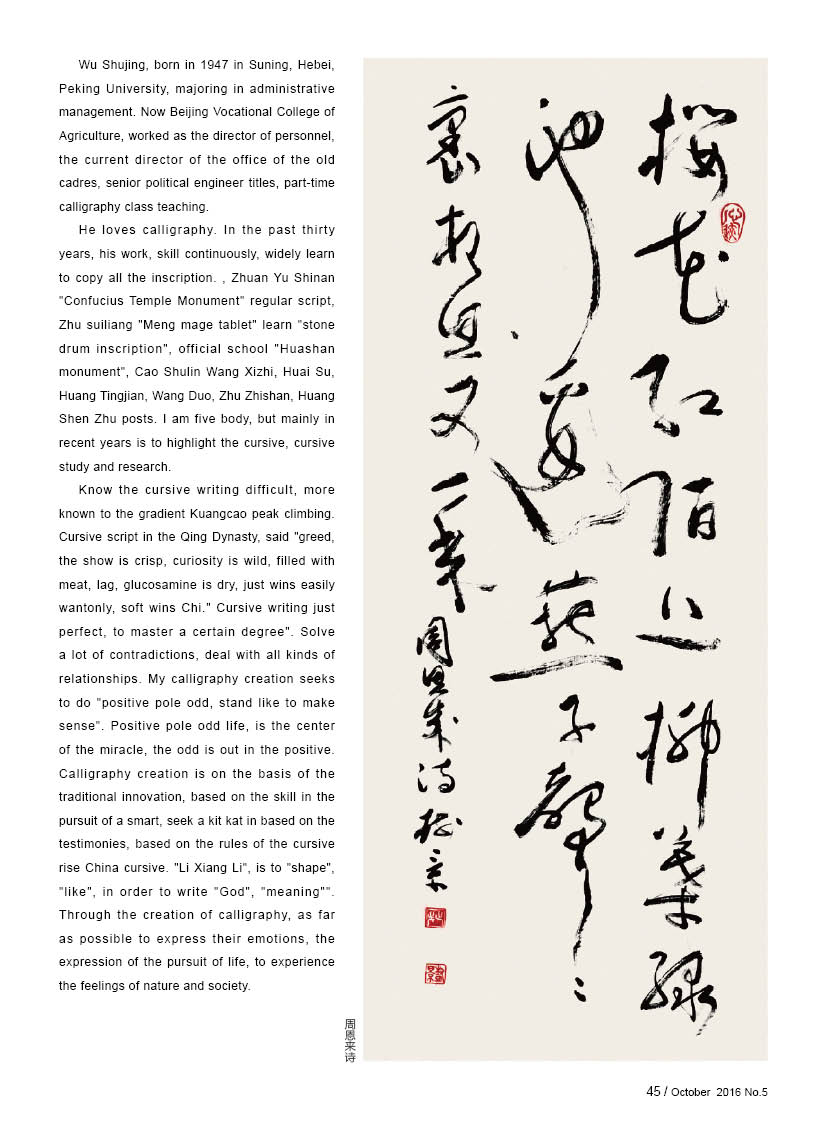 Wu Shujing, born in 1947 in Suning, Hebei,
Peking University, majoring in administrative
management. Now Beijing Vocational College of
Agriculture, worked as the director of personnel,
the current director of the office of the old
cadres, senior political engineer titles, part-time
calligraphy class teaching.
He loves calligraphy. In the past thirty
years, his work, skill continuously, widely learn
to copy all the inscription. , Zhuan Yu Shinan
"Confucius Temple Monument" regular script,
Zhu suiliang "Meng mage tablet" learn "stone
drum inscription", official school "Huashan
monument", Cao Shulin Wang Xizhi, Huai Su,
Huang Tingjian, Wang Duo, Zhu Zhishan, Huang
Shen Zhu posts. I am five body, but mainly in
recent years is to highlight the cursive, cursive
study and research.
Know the cursive writing difficult, more
known to the gradient Kuangcao peak climbing.
Cursive script in the Qing Dynasty, said "greed,
the show is crisp, curiosity is wild, filled with
meat, lag, glucosamine is dry, just wins easily
wantonly, soft wins Chi." Cursive writing just
perfect, to master a certain degree". Solve
a lot of contradictions, deal with all kinds of
relationships. My calligraphy creation seeks
to do "positive pole odd, stand like to make
sense". Positive pole odd life, is the center
of the miracle, the odd is out in the positive.
Calligraphy creation is on the basis of the
traditional innovation, based on the skill in the
pursuit of a smart, seek a kit kat in based on the
testimonies, based on the rules of the cursive
rise China cursive. "Li Xiang Li", is to "shape",
"like", in order to write "God", "meaning"".
Through the creation of calligraphy, as far
as possible to express their emotions, the
expression of the pursuit of life, to experience
the feelings of nature and society.
櫻花紅陌上柳葉綠
池邊燕子聲々
裏相思又一年周恩來詩
周恩来诗
45 / October 2016 No.5